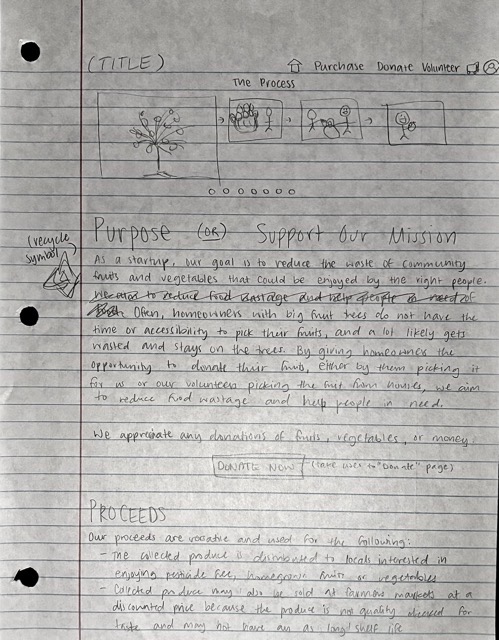 (TITLE)
Purchase Donate Volunteer
The Process
Purpose (OR) Support Our Mission
(recycle
symbol)
As a startup, our goal is to reduce the waste of community
fruits and vegetables that could be enjoyed by the right people.
We aim to reduce food wastage and help people in need of
Often, homeowners with big fruit trees do not have the
time or accessibility to pick their fruits, and a lot likely gets
wasted and stays on the trees. By giving homeowners the
opportunity to donate their fruits, either by them picking it
for us or our volunteers picking the fruit from houses, we aim
to reduce food wastage and help people in need.
We appreciate any donations of fruits, vegetables, or money.
DONATE NOW (take user to "Donate" page)
PROCEEDS
Our proceeds are and used for the following:
- The collected produce is distributed to locals interested in
enjoying pesticide free, homegrown fruits or vegetables
- Collected produce may also be sold at farmers markets at a
discounted price because the produce is not quality for
taste and may not have an as long shelf life